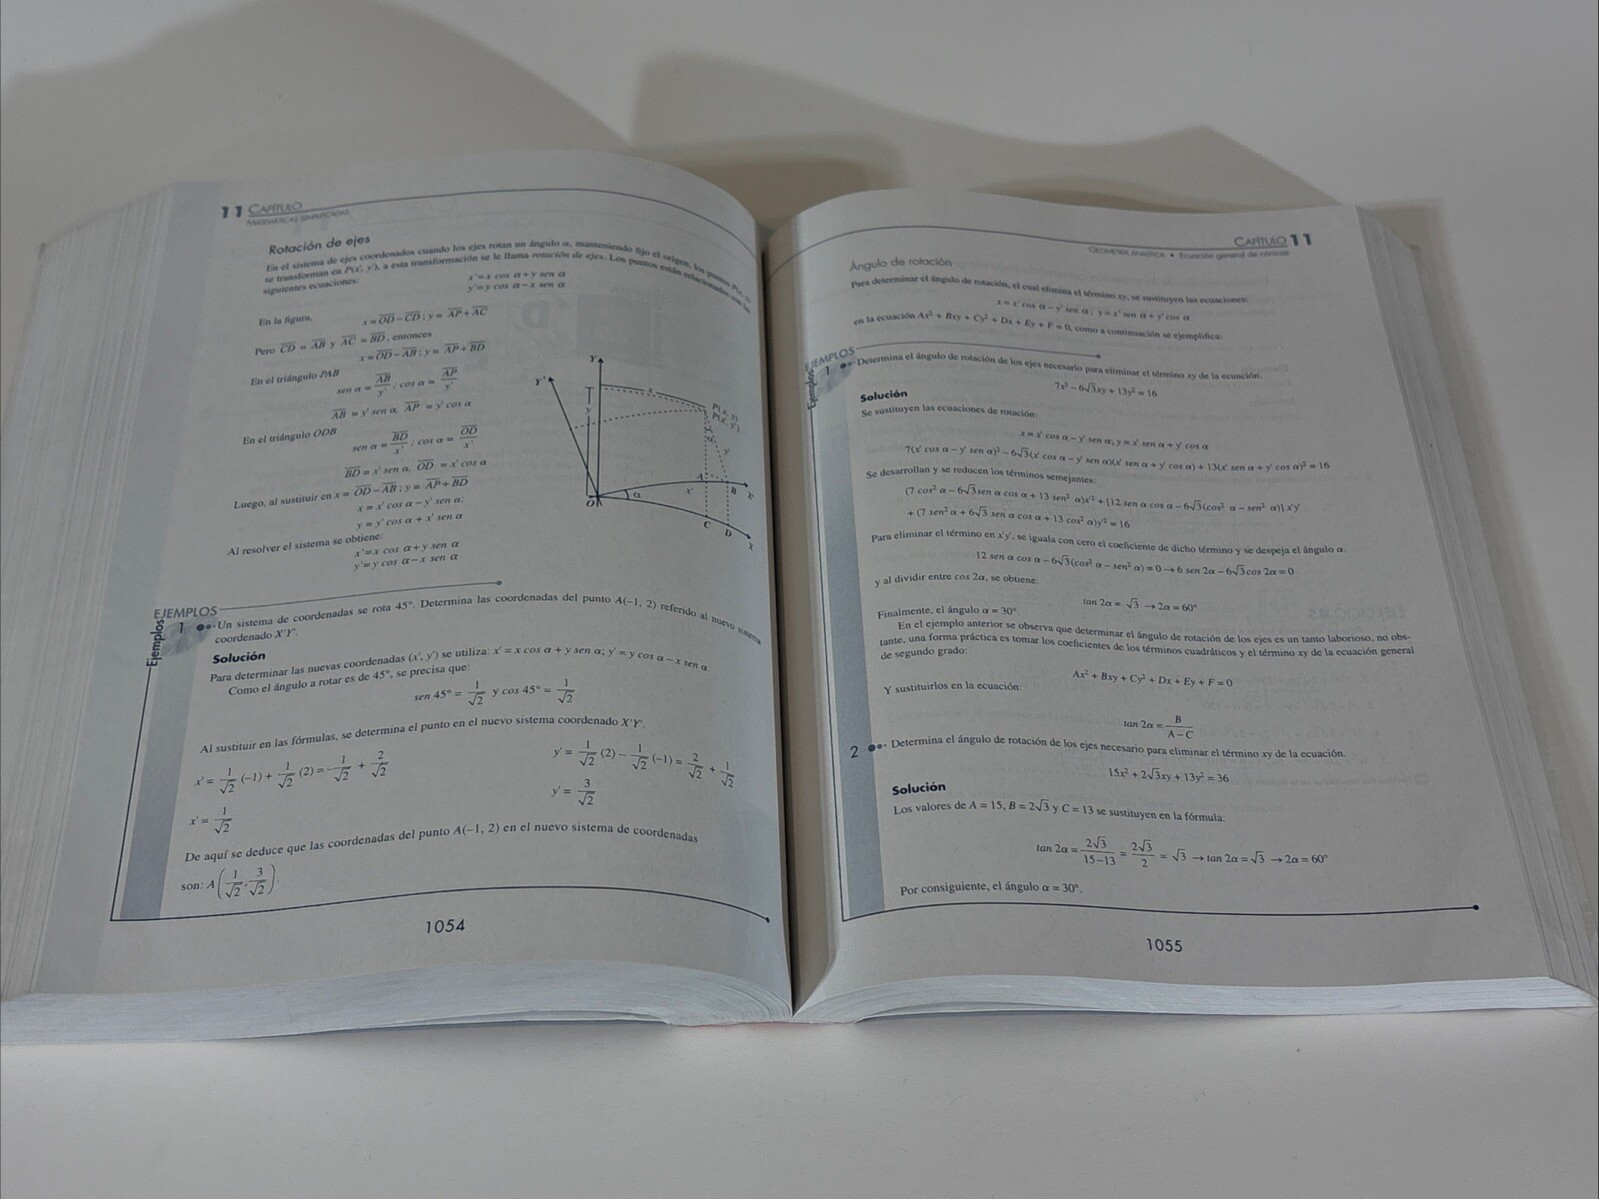 11 CAPÍTULO
MATEMÁTICAS SIMPLIFICADAS
Rotación de ejes
En el sistema de ejes coordenados cuando los ejes rotan un ángulo α, manteniendo fijo el origen, los puntos P(x, y)
se transforman en P(x', y'), a esta transformación se le llama rotación de ejes. Los puntos están relacionados con las
siguientes ecuaciones:
x'= x cos α + y sen α
y'= y cos α − x sen α
En la figura,
x = OD − CD ; y = AP + AC
Pero CD = AB y AC = BD, entonces
x = OD − AB ; y = AP + BD
En el triángulo PAB
sen α = AB/y' ; cos α = AP/y'
AB = y' sen α, AP = y' cos α
En el triángulo ODB
sen α = BD/x' ; cos α = OD/x'
BD = x' sen α, OD = x' cos α
Luego, al sustituir en x = OD − AB ; y = AP + BD
x = x' cos α − y' sen α;
y = y' cos α + x' sen α
Al resolver el sistema se obtiene:
x'= x cos α + y sen α
y'= y cos α − x sen α
Y
Y'
x
P(x, y)
P(x', y')
y
α
y'
A
B
X'
x'
O
α
C
D
X
EJEMPLOS
Ejemplos
1 Un sistema de coordenadas se rota 45°. Determina las coordenadas del punto A(−1, 2) referido al nuevo sistema
coordenado X'Y'.
Solución
Para determinar las nuevas coordenadas (x', y') se utiliza: x' = x cos α + y sen α; y' = y cos α − x sen α
Como el ángulo a rotar es de 45°, se precisa que:
sen 45° = 1/√2 y cos 45° = 1/√2
Al sustituir en las fórmulas, se determina el punto en el nuevo sistema coordenado X'Y'.
x' = 1/√2 (−1) + 1/√2 (2) = −1/√2 + 2/√2
y' = 1/√2 (2) − 1/√2 (−1) = 2/√2 + 1/√2
x' = 1/√2
y' = 3/√2
De aquí se deduce que las coordenadas del punto A(−1, 2) en el nuevo sistema de coordenadas
son: A(1/√2, 3/√2).
1054
CAPÍTULO 11
GEOMETRÍA ANALÍTICA • Ecuación general de cónicas
Ángulo de rotación
Para determinar el ángulo de rotación, el cual elimina el término xy, se sustituyen las ecuaciones:
x = x' cos α − y' sen α ; y = x' sen α + y' cos α
en la ecuación Ax² + Bxy + Cy² + Dx + Ey + F = 0, como a continuación se ejemplifica:
EJEMPLOS
Ejemplos
1 Determina el ángulo de rotación de los ejes necesario para eliminar el término xy de la ecuación.
7x² − 6√3xy + 13y² = 16
Solución
Se sustituyen las ecuaciones de rotación:
x = x' cos α − y' sen α; y = x' sen α + y' cos α
7(x' cos α − y' sen α)² − 6√3(x' cos α − y' sen α)(x' sen α + y' cos α) + 13(x' sen α + y' cos α)² = 16
Se desarrollan y se reducen los términos semejantes:
(7 cos² α − 6√3 sen α cos α + 13 sen² α)x'² + [12 sen α cos α − 6√3(cos² α − sen² α)] x'y'
+ (7 sen² α + 6√3 sen α cos α + 13 cos² α)y'² = 16
Para eliminar el término en x'y', se iguala con cero el coeficiente de dicho término y se despeja el ángulo α.
12 sen α cos α − 6√3(cos² α − sen² α) = 0 → 6 sen 2α − 6√3 cos 2α = 0
y al dividir entre cos 2α, se obtiene:
tan 2α = √3 → 2α = 60°
Finalmente, el ángulo α = 30°.
En el ejemplo anterior se observa que determinar el ángulo de rotación de los ejes es un tanto laborioso, no obs-
tante, una forma práctica es tomar los coeficientes de los términos cuadráticos y el término xy de la ecuación general
de segundo grado:
Ax² + Bxy + Cy² + Dx + Ey + F = 0
Y sustituirlos en la ecuación:
tan 2α = B/(A − C)
2 Determina el ángulo de rotación de los ejes necesario para eliminar el término xy de la ecuación.
15x² + 2√3xy + 13y² = 36
Solución
Los valores de A = 15, B = 2√3 y C = 13 se sustituyen en la fórmula:
tan 2α = 2√3/(15−13) = 2√3/2 = √3 → tan 2α = √3 → 2α = 60°
Por consiguiente, el ángulo α = 30°.
1055